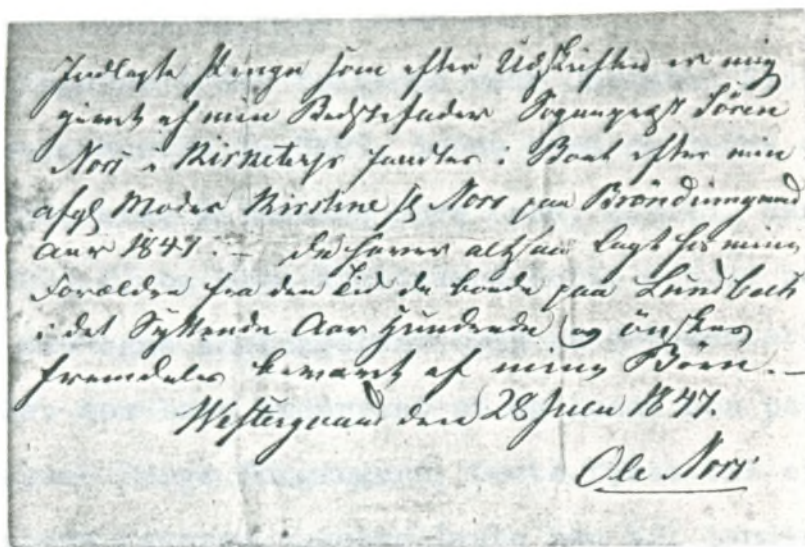 Indlagte Penge som efter Udskriften er mig
givet af min Bedstefader Sognefogd Sören
Nors i fandtes i Boet efter min
afg Moder Kirstine Nors paa Bröndumgaard
Aar 1847. – De haver altsaa lagt hos mine
Forældre fra den Tid de boede paa Lundbæk
i det Syttende Aar Hundrede og önskes
fremdeles bevaret af mine Börn. –
Westergaard den 28 Juni 1847.
Ole Nors